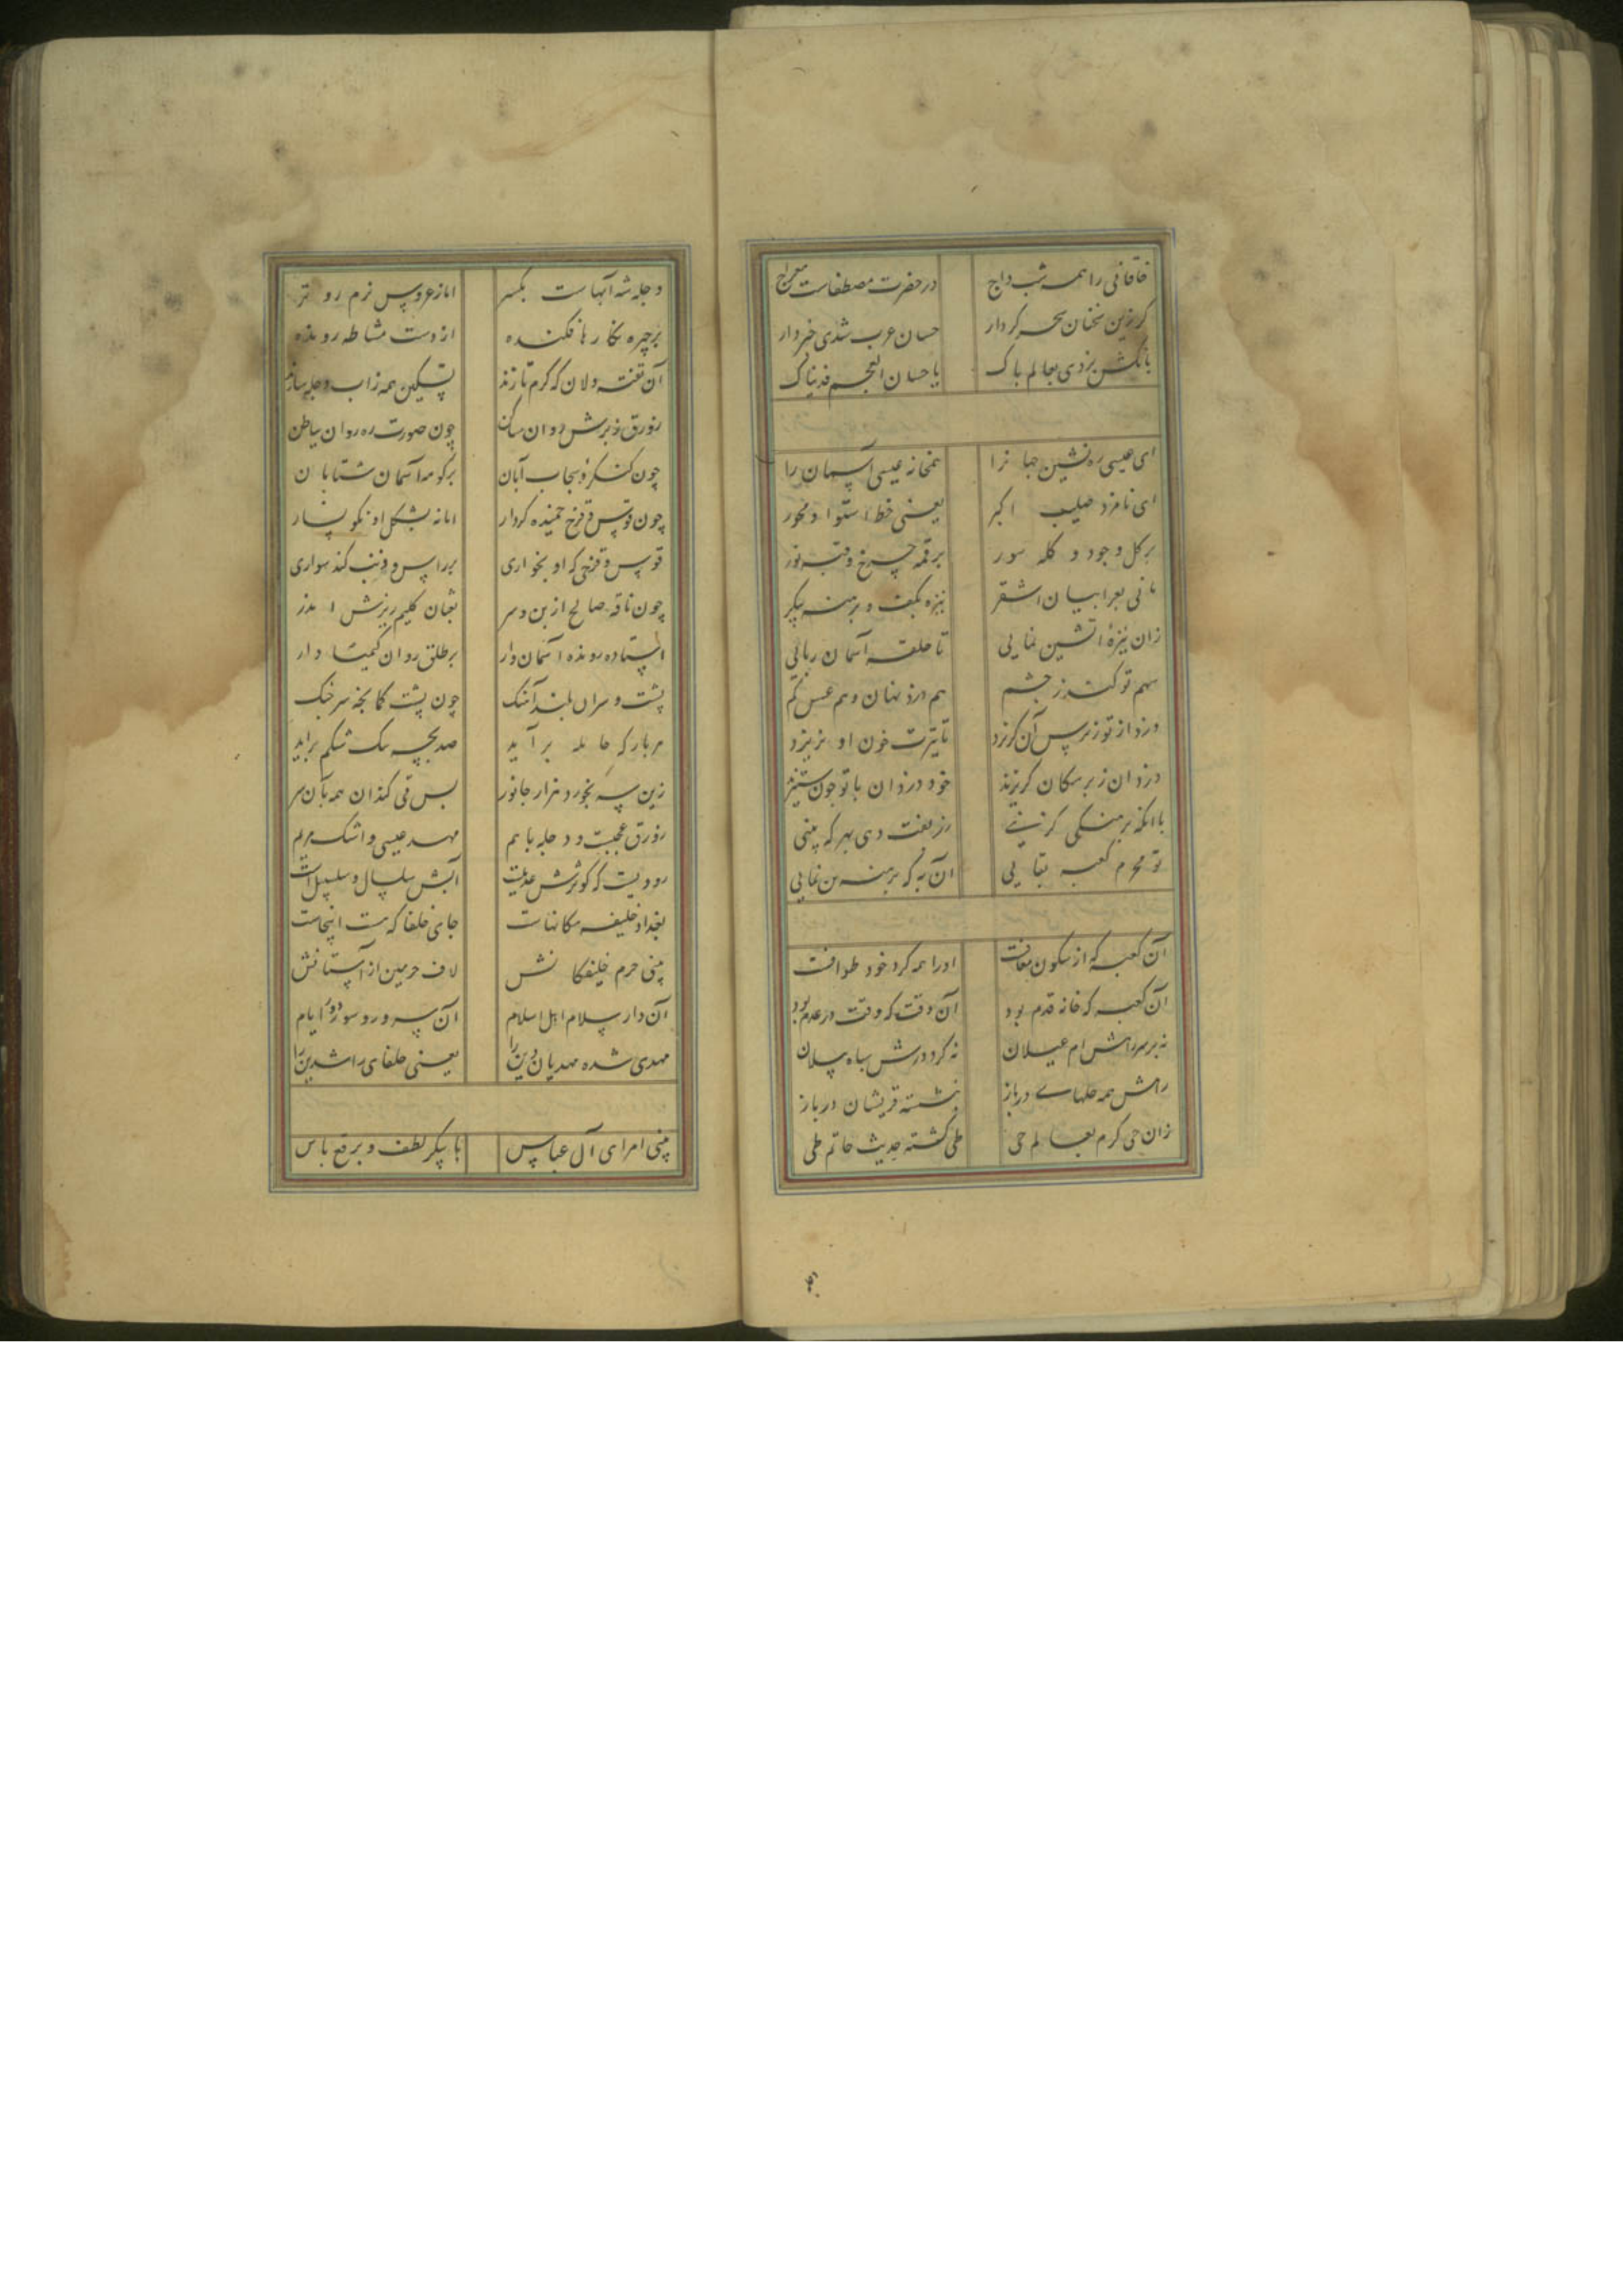 خاقانی را همه شب داج در حضرت مصطفاست معراج
کر زین سخنان سحر کردار حسان عرب شدی خبردار
بانکش بزدی بعالم پاک یا حسان العجم فدیناک
ای عیسی ره نشین جهانرا همخانه عیسی آسمان را
ای نامزد صلیب اکبر یعنی خط استوا و محور
بر کل وجود و کله سور بر قمه چرخ و قبه نور
مانی بعرابیان اشقر نیزه بکف و برهنه پیکر
زان نیزهٔ آتشین نمایی تا حلقه آسمان ربایی
سهم تو کند ز چشم هم دزد نهان و هم عسس کم
دزد از تو ز ترس آن کریزد تا تیزیت خون او نریزد
دزدان ز بر سکان کریزند خود دزدان با تو چون ستیزند
با آنکه برهنگی کزینی زر بفت دهی بهر که بینی
تو محرم کعبه بقایی آن به که برهنه تن نمایی
آن کعبه که از سکون معافست اورا همه کرد خود طوافست
آن کعبه که خانه قدم بود آن وقت که وقت در عدم بود
نه بر سر راهش ام غیلان نه کرد درش سپاه پیلان
راهش همه حلهاء درباز نشسته قریشان در باز
زان حی کرم بعالم حی طی کشته حدیث حاتم طی
دجله شه آبهاست یکسر اما ز عروس نرم رو تر
بر چهره نکارها فکنده از دست مشاطه رونده
آن تفته دلان که کرم تازند تسکین همه زاب دجله سازند
زورق ز برش دوان ساکن چون صورت ره روان باطن
چون کنکر و سحاب آبان بر کومه آسمان شتابان
چون قوس قزح خمیده کردار اما نه بشکل او نکونسار
قوس قزحی که او بخواری بر راس و ذنب کند سواری
چون ناقه صالح از بن و سر ثعبان کلیم زیرش اندر
استاده رونده آسمان وار بر طلق روان کمیت دار
پشت و سران بلند آهنک چون پشت کمانچه سر چنک
هر بار که حامله برآید صد بچه بیک شکم براید
زین سر بخورد هزار جانور بس قی کند آن همه بآن سر
زورق عجبست و دجله باهم مهد عیسی و اشک مریم
رودیست که کوثرش عدیلست آبش سلسال و سلسبیلست
بغداد خلیفه مکانهاست جای خلفا که هست اینجاست
بینی حرم خلیفکانش لاف حرمین از آستانش
آن دار سلام اهل اسلام آن سرور و سور دور ایام
مهدی شده مهدیان دین را یعنی خلفای راشدین را
بینی امرای آل عباس با پیکر لطف و برقع باس